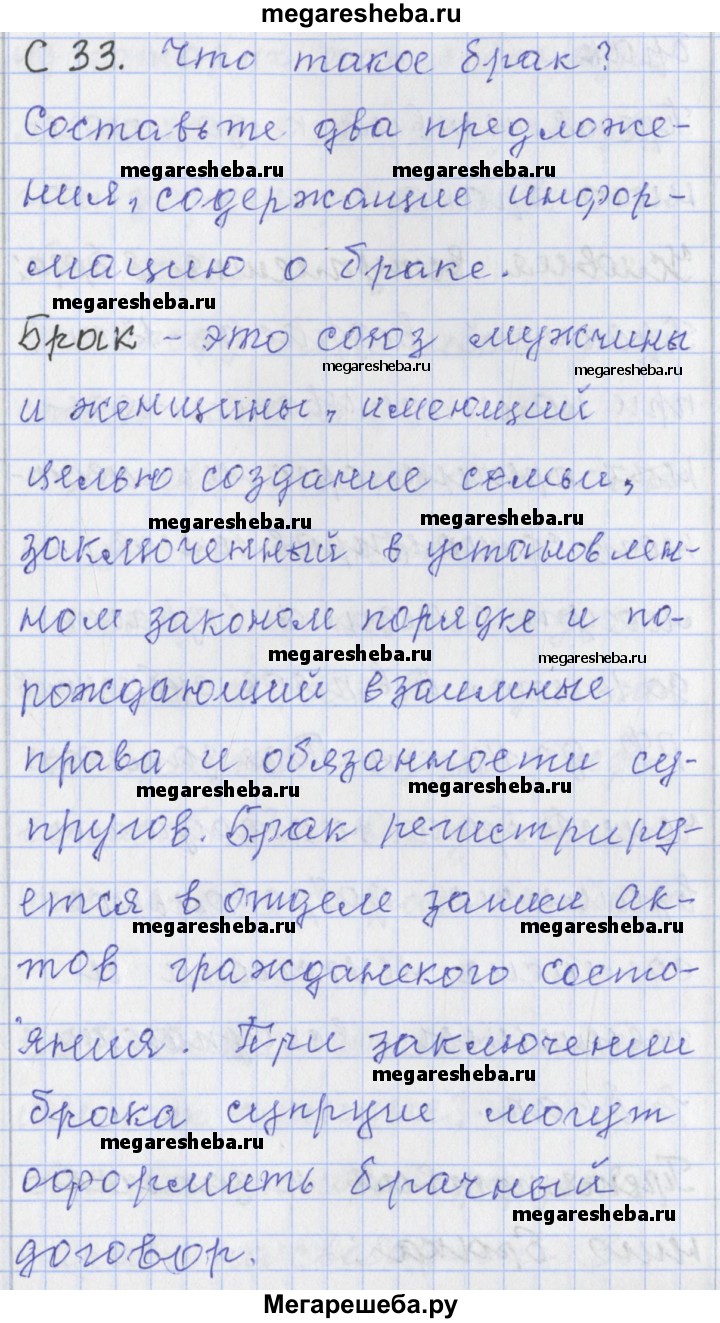 megaresheba.ru
С 33. Что такое брак?
Составьте два предложе-
megaresheba.ru megaresheba.ru
ния, содержащие инфор-
мацию о браке.
megaresheba.ru
Брак - это союз мужчины
megaresheba.ru megaresheba.ru
и женщины, имеющий
целью создание семьи,
megaresheba.ru megaresheba.ru
заключенный в установлен-
ном законом порядке и по-
megaresheba.ru megaresheba.ru
рождающий взаимные
права и обязанности су-
megaresheba.ru megaresheba.ru
пругов. Брак регистриру-
ется в отделе записи ак-
megaresheba.ru megaresheba.ru
тов гражданского состо-
яния. При заключении
megaresheba.ru
брака супруги могут
megaresheba.ru
оформить брачный
megaresheba.ru
договор.
Мегарешеба.ру